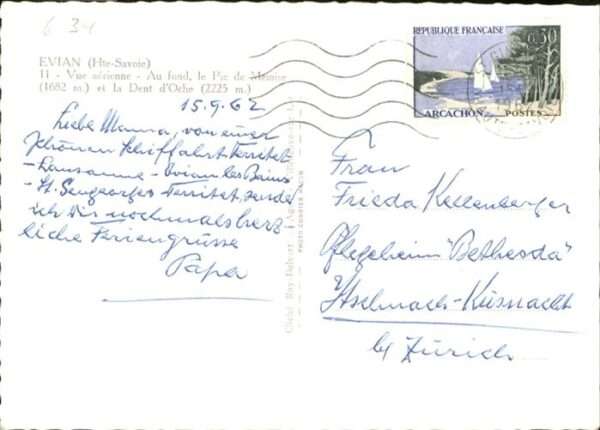 6 34
EVIAN (Hte-Savoie)
11 - Vue aérienne - Au fond, le Pic de Memise
(1682 m.) et la Dent d'Oche (2225 m.)
15.9.62
Liebe Mamma, von einer
schönen Schiffahrt Territet
- Lausanne - Evian les Bains
- St. Gengeorges Territet, sende
ich Dir nochmals herz-
liche Feriengrüsse
Papa
RÉPUBLIQUE FRANÇAISE
0,30
ARCACHON
POSTES
Frau
Frieda Kellenberger
Pflegeheim "Bethesda"
Itschnach-Küsnacht
b/ Zürich